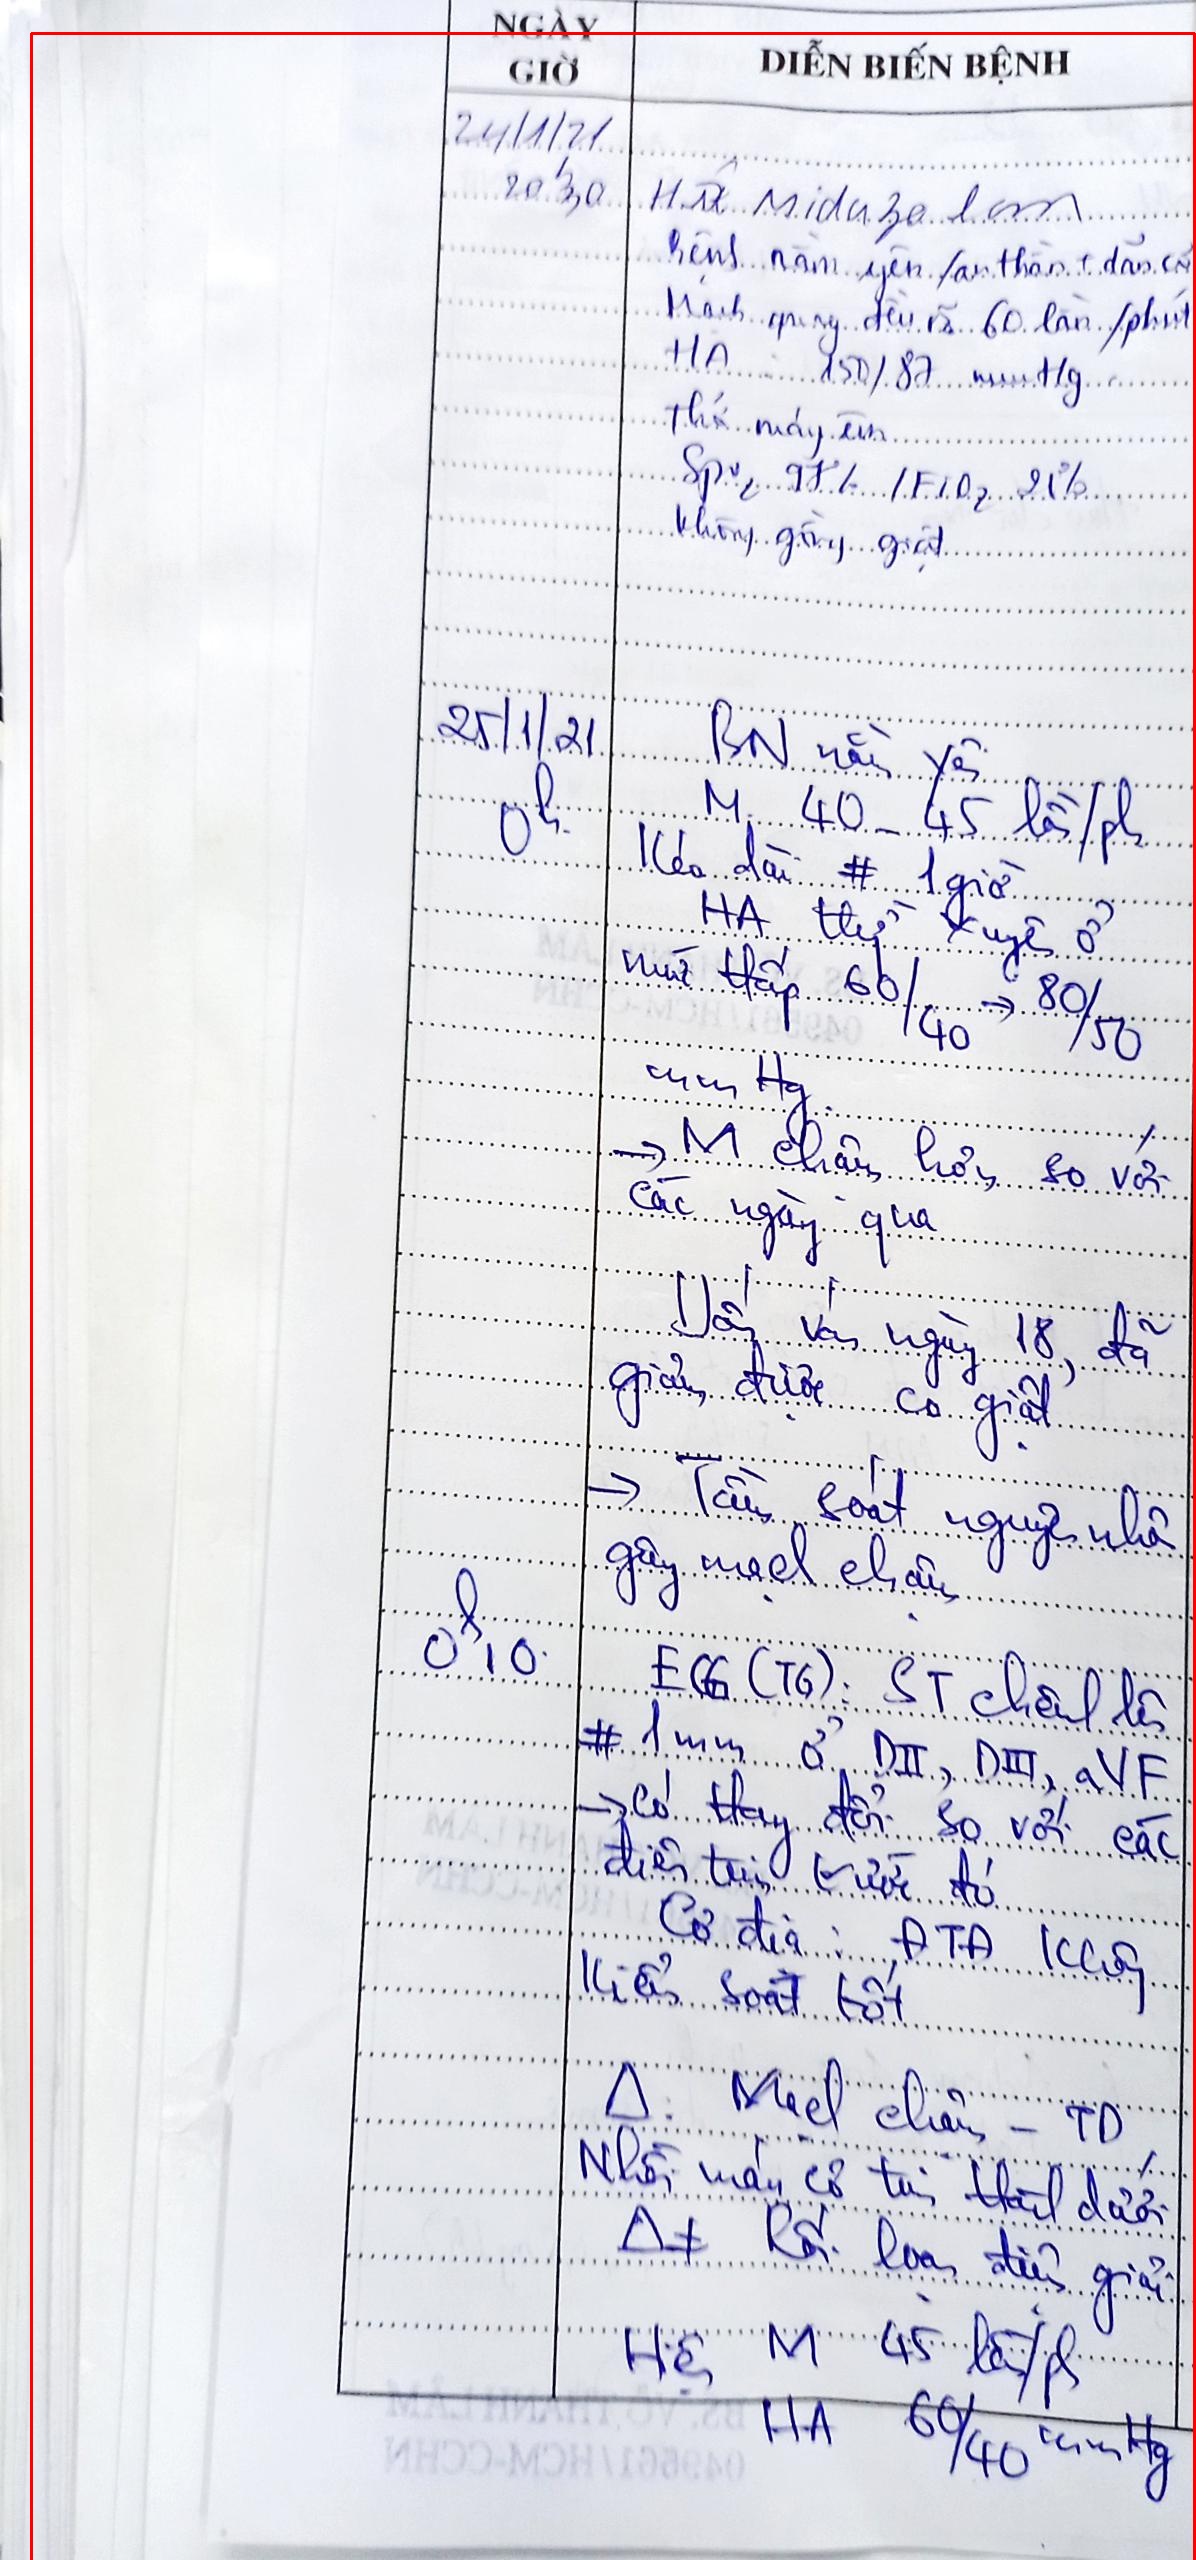 NGÀY GIỜ
DIỄN BIẾN BỆNH
24/1/21
20h30 Hết Midazolam
Bệnh nằm yên /an thần + dãn cơ
Mạch quay đều rõ 60 lần /phút
HA : 150/87 mmHg
thở máy êm
SpO2 98% /FiO2 21%
không gồng giật
25/1/21 BN nằm yên
0h M 40 - 45 lần/ph
Kéo dài # 1 giờ
HA thường xuyên ở
mức thấp 60/40 → 80/50
mmHg.
→ M chậm hơn so với
các ngày qua
Uốn ván ngày 18, đã
giảm được co giật
→ Tầm soát nguyên nhân
gây mạch chậm
0h10 ECG (TG): ST chênh lên
# 1mm ở DII, DIII, aVF
→ có thay đổi so với các
điện tim trước đó
Cơ địa : ĐTĐ không
kiểm soát tốt
Δ: Mạch chậm - TD
Nhồi máu cơ tim thành dưới
Δ≠ Rối loạn điện giải
Hiện M 45 lần/ph
HA 60/40 mmHg
BS. VÕ THANH LÂM
049561/HCM-CCHN